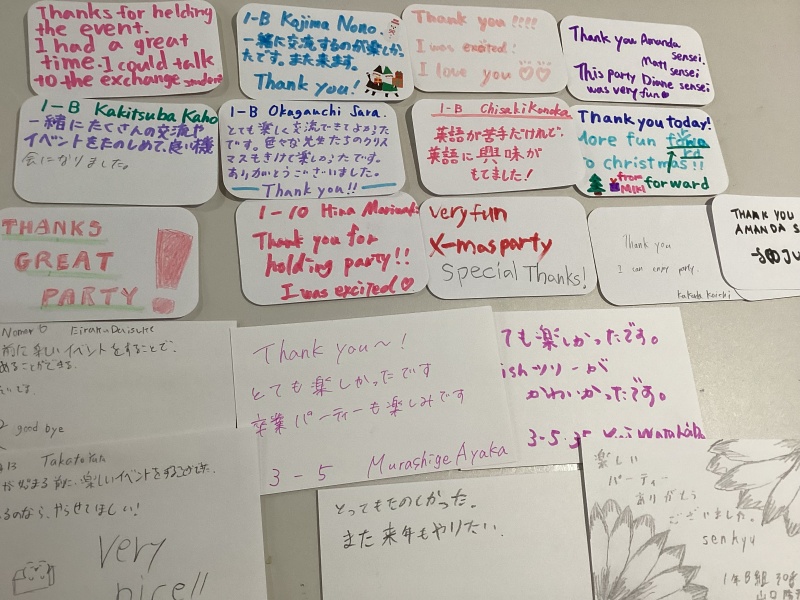 Thanks for helding
the event.
I had a great
time. I could talk
to the exchange student
1-B Kajima Nono.
一緒に交流するのが楽しかっ
たです。また来ます。
Thank you!
Thank you!!!!
I was excited!
I love you ♡♡
Thank you Amanda
sensei.
Matt sensei
This party Dinne sensei
was very fun
1-B Kakitsuba Kaho
一緒にたくさんの交流や
イベントをたのしめて、良い機
会になりました。
1-B Okagauchi Sara.
とても楽しく交流できてよかった
です。色々な先生たちのクリス
マスもきけて楽しかったです。
ありがとうございました。
Thank you!!
1-B Chisaki Konoka
英語が苦手だけれど、
英語に興味が
もてました!
Thank you today!
More fun
to christmas!!
from
MIKI
forward
THANKS
GREAT
PARTY
!
1-10 Hina
Thank you for
holding party!!
I was excited ♡
very fun
X-mas party
Special Thanks!
Thank you
I can enjoy party.
THANK YOU
AMANDA S
前に楽しいイベントをすることで、
あることができる。
good bye
Thank you~!
とても楽しかったです
卒業パーティーも楽しみです
3-5 Murashige Ayaka
ても楽しかったです。
ishツリーが
かわいかったです。
3-5
前に、楽しいイベントを
るのなら、やらせてほしい!
very
nice!!
とってもたのしかった。
また来年もやりたい。
楽しい
パーティー
ありがとう
ございました。
senkyu
1年B組 30番
山口